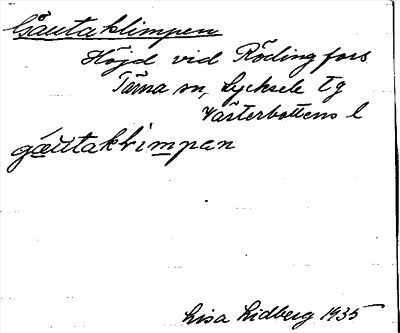 Gäutaklimpen
Höjd vid Rödingfors
Tärna sn, Lycksele tg
Västerbottens l
gæutaklimpan
Lisa Lidberg 1935